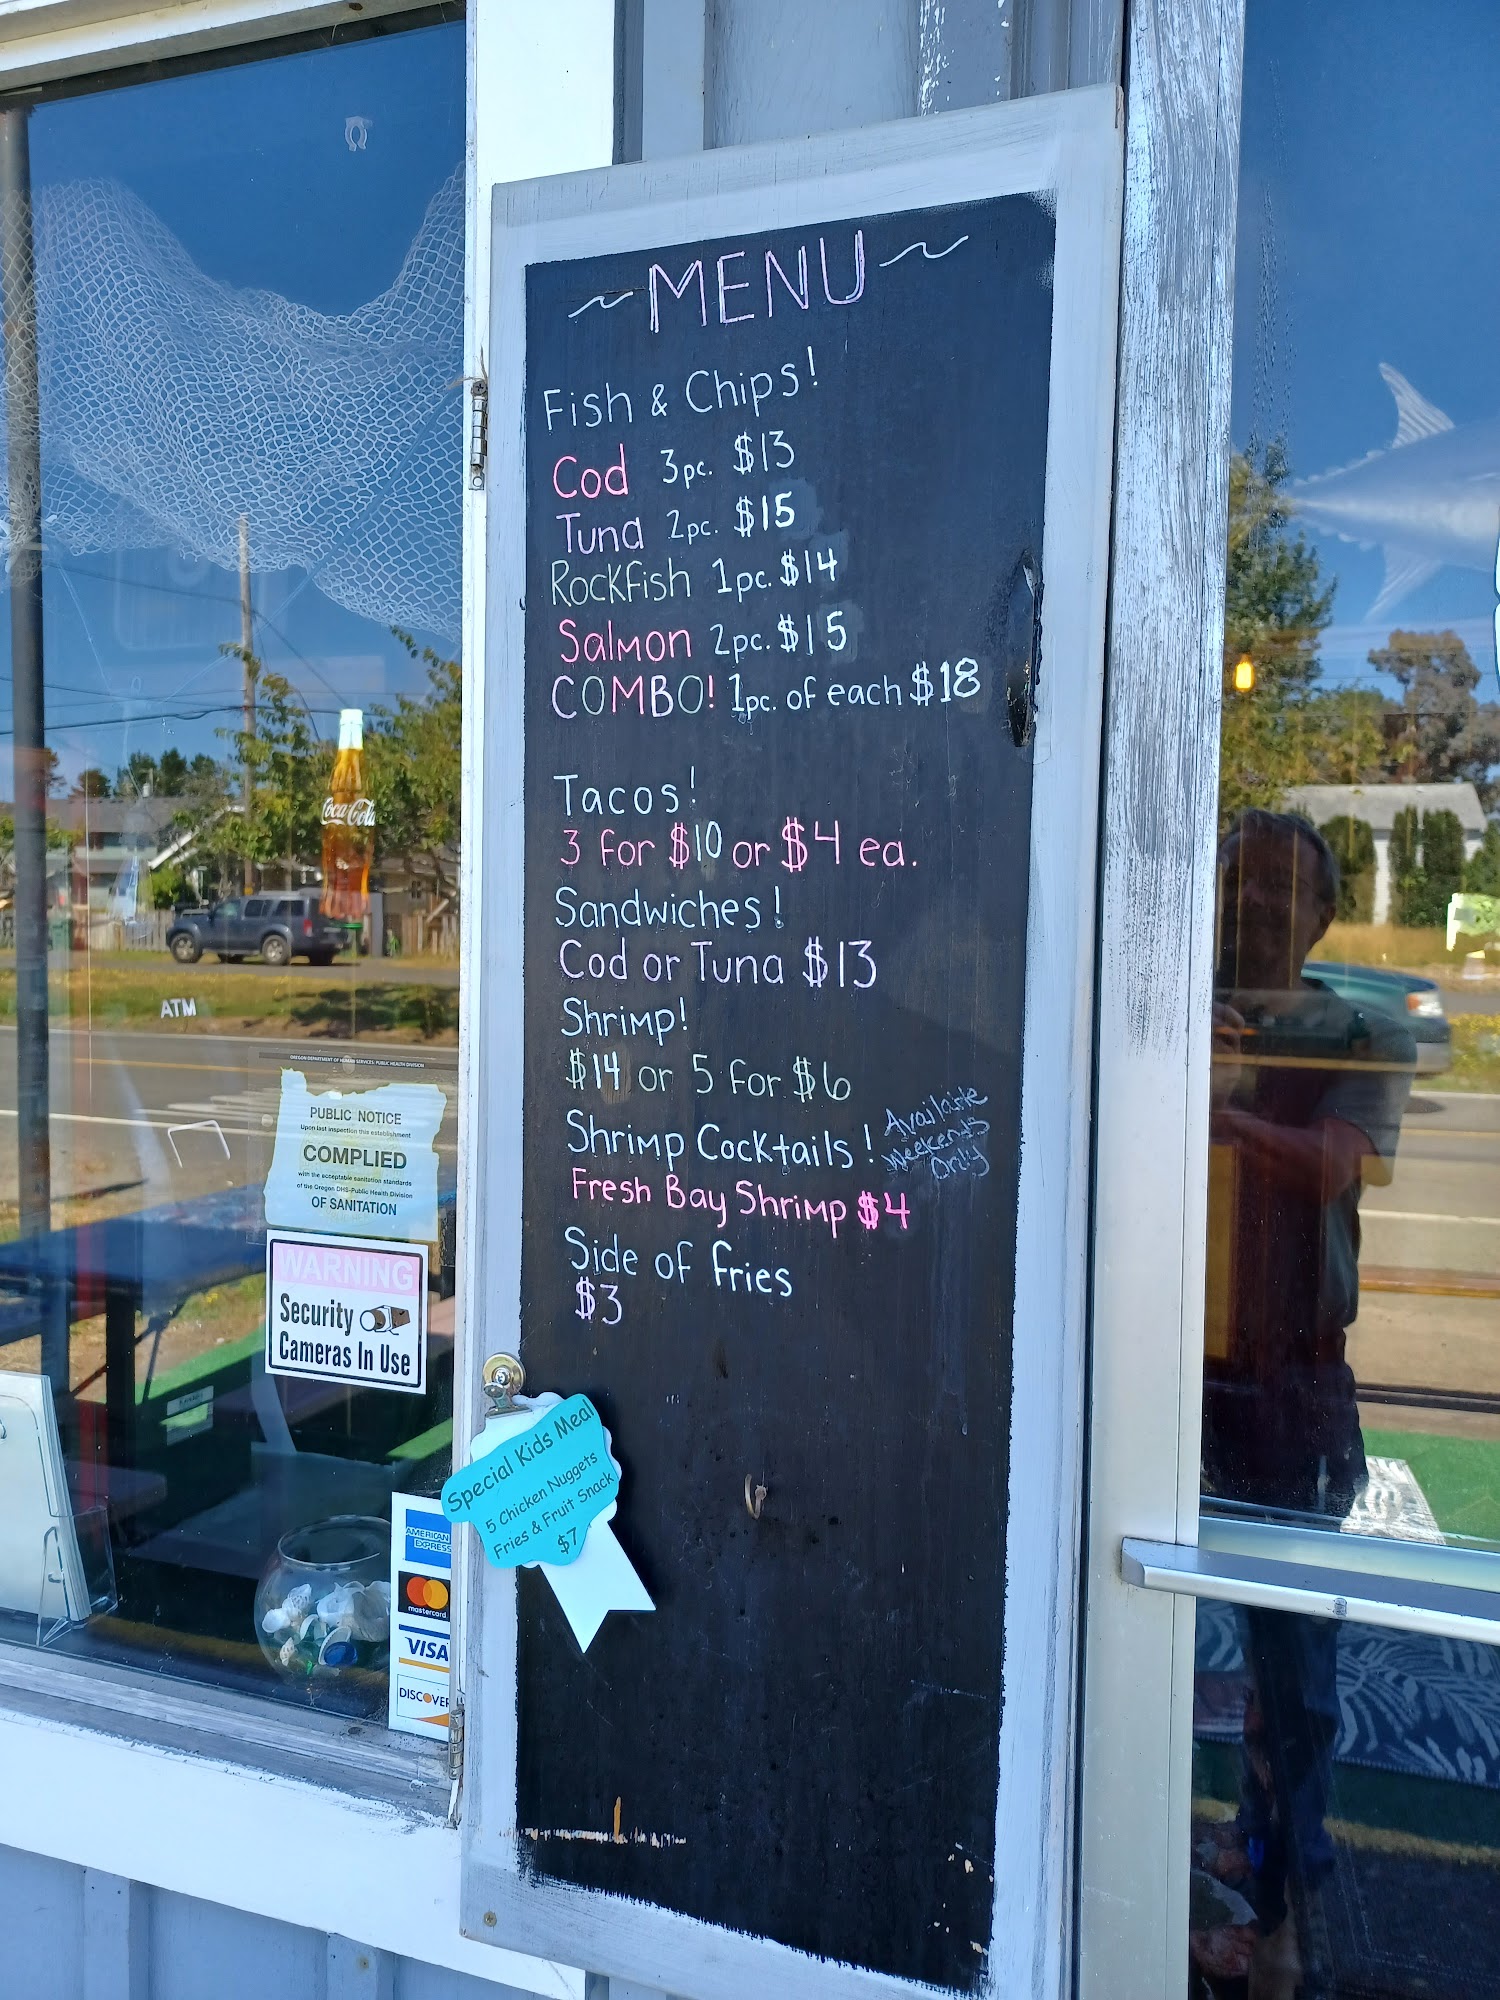 MENU
Fish & Chips!
Cod 3pc. $13
Tuna 2pc. $15
Rockfish 1pc. $14
Salmon 2pc. $15
COMBO! 1pc. of each $18
Tacos!
3 for $10 or $4 ea.
Sandwiches!
Cod or Tuna $13
Shrimp!
$14 or 5 for $6
Shrimp Cocktails!
Available
Weekends
Only
Fresh Bay Shrimp $4
Side of fries
$3
Special Kids Meal
5 Chicken Nuggets
Fries & Fruit Snack
$7
Coca-Cola
ATM
OREGON DEPARTMENT OF HUMAN SERVICES: PUBLIC HEALTH DIVISION
PUBLIC NOTICE
Upon last inspection this establishment
COMPLIED
with the acceptable sanitation standards
of the Oregon DHS-Public Health Division
OF SANITATION
WARNING
Security
Cameras In Use
AMERICAN
EXPRESS
mastercard
VISA
DISCOVER